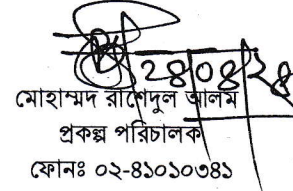 ২৪/০৪/২৪
মোহাম্মদ রাশেদুল আলম
প্রকল্প পরিচালক
ফোনঃ ০২-৪১০১০৩৪১